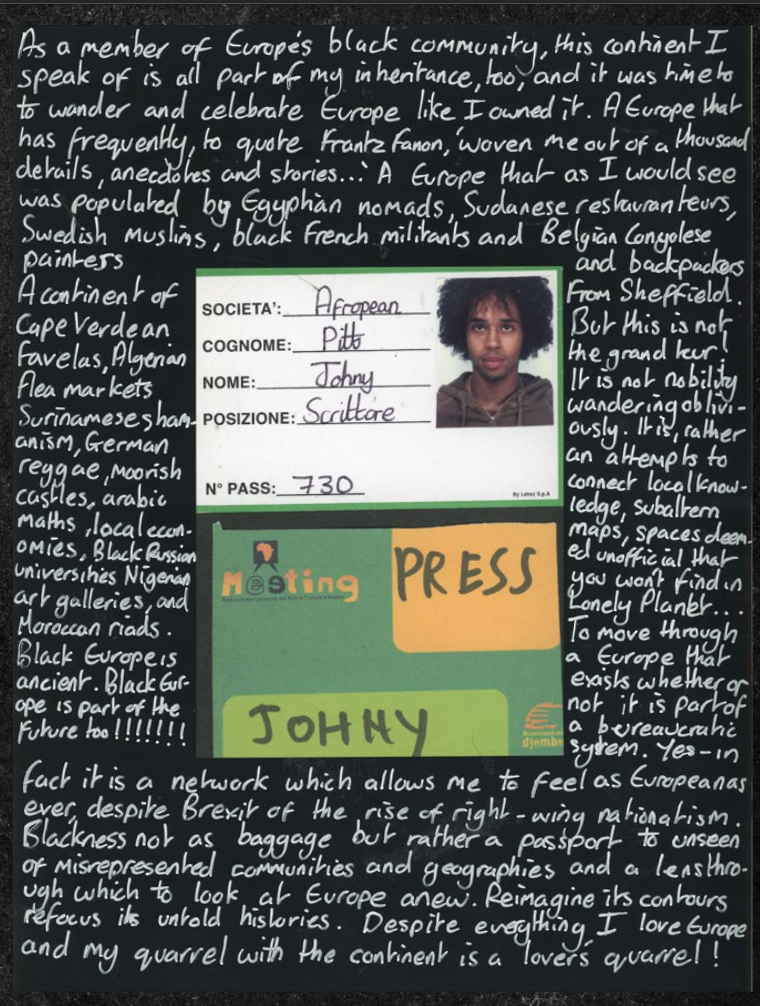 As a member of Europe's black community, this continent I
speak of is all part of my inheritance, too, and it was time to
to wander and celebrate Europe like I owned it. A Europe that
has frequently, to quote Frantz Fanon, 'woven me out of a thousand
details, anecdotes and stories...' A Europe that as I would see
was populated by Egyptian nomads, Sudanese restauranteurs,
Swedish Muslims, black French militants and Belgian Congolese
painters
A continent of
Cape Verdean
favelas, Algerian
flea markets
Surinamese sham-
anism, German
reggae, moorish
castles, arabic
maths, local econ-
omies, Black Russian
universities Nigerian
art galleries, and
Moroccan riads.
Black Europe is
ancient. Black Eur-
ope is part of the
future too !!!!!!!
SOCIETA': Afropean
COGNOME: Pitts
NOME: Johny
POSIZIONE: Scrittore
N° PASS: 730
By Lebez S.p.A
Meeting
PRESS
JOHNY
djembe
and backpackers
from Sheffield.
But this is not
the grand tour!
It is not nobility
wandering oblivi-
ously. It is, rather
an attempts to
connect local know-
ledge, subaltern
maps, spaces deem-
ed unofficial that
you won't find in
Lonely Planet...
To move through
a Europe that
exists whether or
not it is part of
a bureaucratic
system. Yes - in
fact it is a network which allows me to feel as European as
ever, despite Brexit of the rise of right-wing nationalism.
Blackness not as baggage but rather a passport to unseen
of misrepresented communities and geographies and a lens thro-
ugh which to look at Europe anew. Reimagine its contours
refocus its untold histories. Despite everything I love Europe
and my quarrel with the continent is a lover's quarrel !